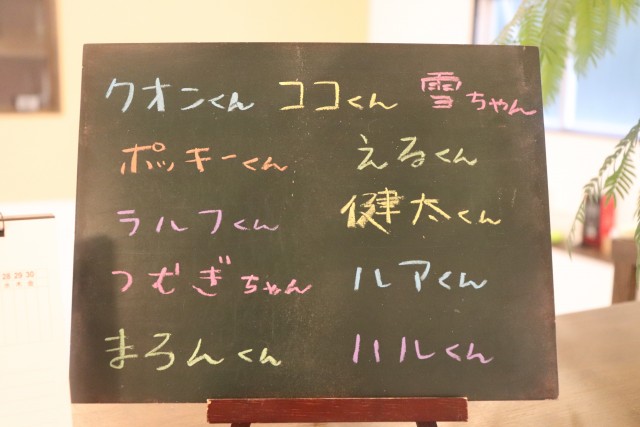 クオンくん ココくん 雪ちゃん
ポッキーくん えるくん
ラルフくん 健太くん
つむぎちゃん ルアくん
まろんくん ハルくん
28 29 30